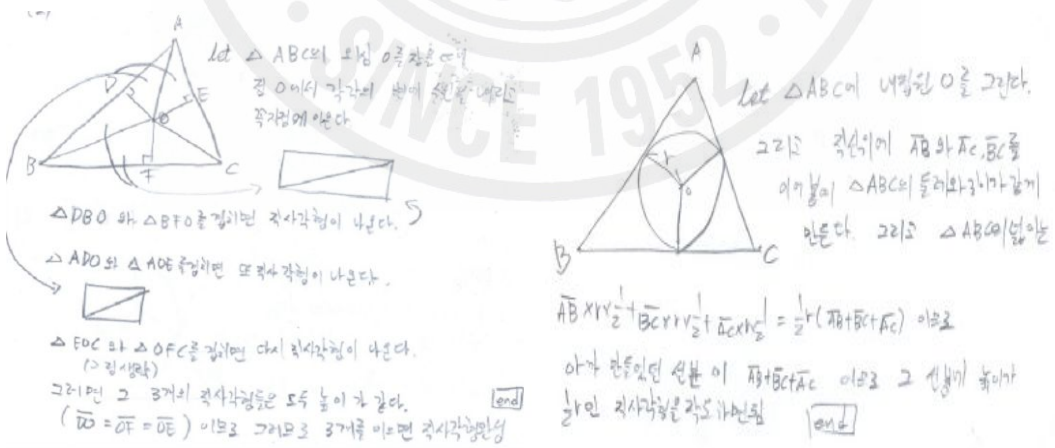 A
D
E
O
B
F
C
let △ABC의 외심 O를 잡은
점 O에서 각각의 변에 수선을 내리고
꼭지점에 이은다
△DBO 와 △BFO를 겹치면 직사각형이 나온다.
△ADO와 △AOE를 겹치면 또 직사각형이 나온다.
△EOC 와 △OFC를 겹치면 다시 직사각형이 나온다.
(그림생략)
그러면 그 3개의 직사각형들은 모두 높이가 같다.
(DO = OF = OE) 이므로 그러므로 3개를 이으면 직사각형완성
end
SINCE 1952
A
r
o
B
C
let △ABC에 내접원 O를 그린다.
그리고 직선위에 AB와 AC, BC를
이어붙여 △ABC의 둘레와 길이가 같게
만든다. 그리고 △ABC의 넓이는
AB×r×1/2+BC×r×1/2+AC×r×1/2 = 1/2r(AB+BC+AC) 이므로
아까 만들었던 선분이 AB+BC+AC 이므로 그 선분에 높이가
1/2r인 직사각형을 작도하면됨
end